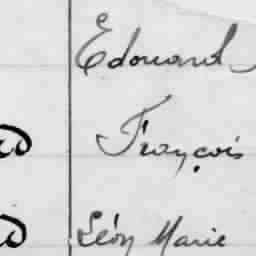 Edouard
François
Léon Marie